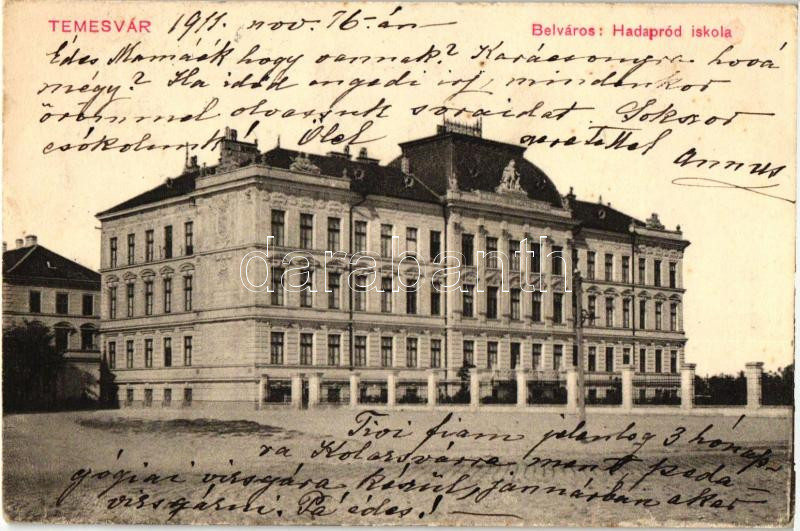 TEMESVÁR 1911. nov. 16-án Belváros: Hadapród iskola
Édes Mamáck hogy vannak? Karácsonyra hová
mégy? Ha idád engedi irj, mindenkor
örömmel olvassuk soraidat. Sokszor
csókolunk! Ölel szeretettel Annus
darabanth.com
Tivi fiam jelenleg 3 hónap-
ra Kolozsvárra ment peda
gógiai vizsgára készül, januárban akar
vizsgázni. Pá édes! —